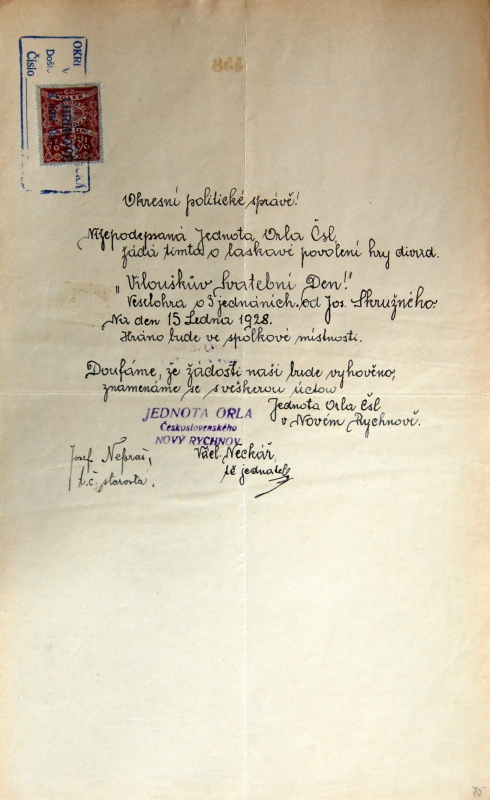 458
OKRE
Došlo
Číslo
Okresní politické správě!
Nížepodepsaná Jednota Orla Čsl.
žádá tímto o laskavé povolení hry divad.
"Vlouškův svatební Den!"
Veselohra o 3 jednáních. od Jos. Skružného.
Na den 15 Ledna 1928.
Hráno bude ve spolkové místnosti.
Doufáme, že žádosti naší bude vyhověno,
znamenáme se s veškerou úctou
Jednota Orla Čsl
v Novém Rychnově.
JEDNOTA ORLA
Československého
NOVÝ RYCHNOV.
Josef Nepraš,
t.č. starosta.
Václ. Neckář,
tč jednatel
75